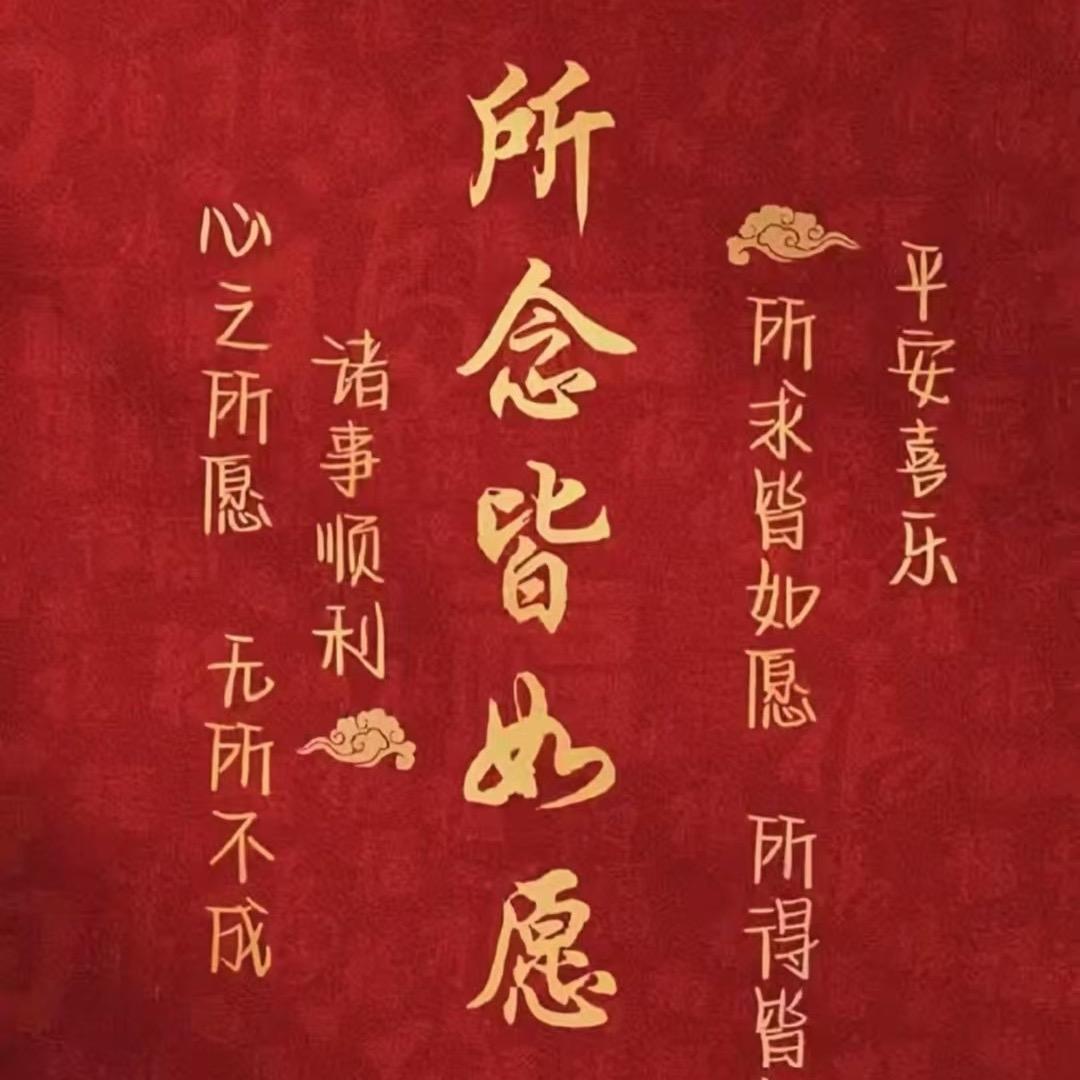 平安喜乐
所求皆如愿 所得皆
所念皆如愿
诸事顺利
心之所愿 无所不成